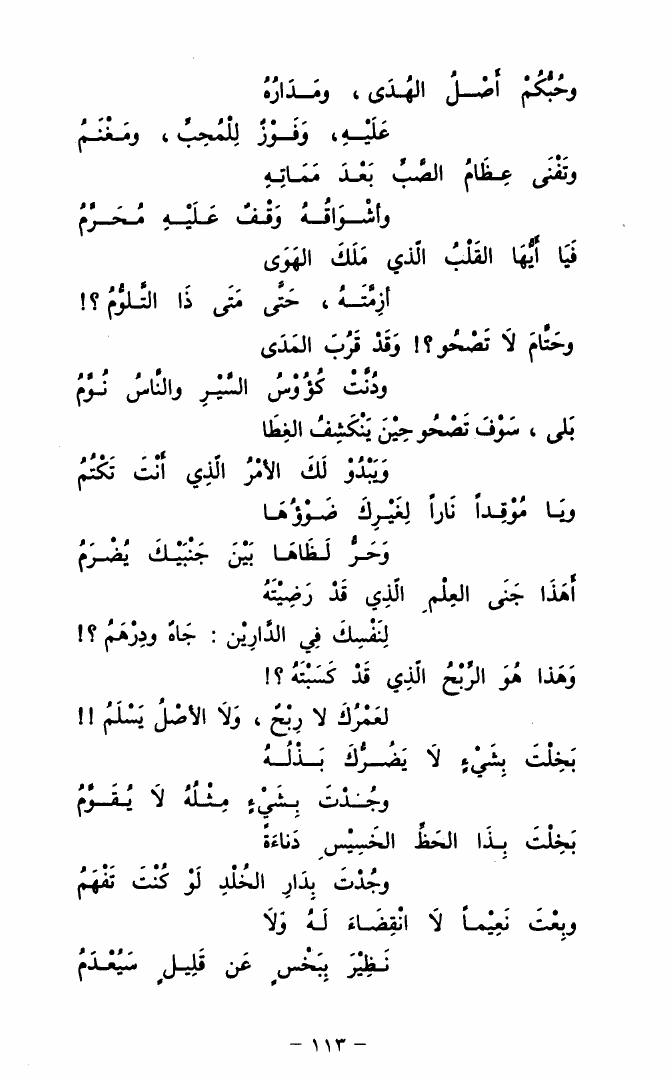 وحُبُّكُمْ أَصْـلُ الهُـدَى ، ومَـدَارُهُ
عَلَيْـهِ، وَفَـوْزٌ لِلْمُحِبِّ ، ومَـغْنَـمُ
وتَفْنَى عِظَامُ الصَّبِّ بَعْدَ مَمَـاتِـهِ
وأشْـوَاقُـهُ وَقْـفٌ عَلَيْـهِ مُحَـرَّمُ
فَيَا أَيُّهَا القَلْبُ الَّذي مَلَكَ الهَوَى
أزِمَّتَـهُ ، حَتَّى مَتَى ذَا التَّلَوُّمُ ؟!
وحَتَّامَ لَا تَصْحُو؟! وَقَدْ قَرُبَ المَدَى
ودُنَّتْ كُؤُوْسُ السَّيْرِ والنَّاسُ نُـوَّمُ
بَلى ، سَوْفَ تَصْحُو حِيْنَ يَنْكَشِفُ الغِطَا
وَيَبْدُوْ لَكَ الأمْرُ الَّذِي أَنْتَ تَكْتُمُ
ويَـا مُوْقِـداً نَاراً لِغَيْـرِكَ ضَـوْؤُهَـا
وَحَـرُّ لَـظَاهَـا بَيْنَ جَنْبَيْـكَ يُضْـرَمُ
أَهَذَا جَنَى العِلْمِ الَّذِي قَدْ رَضِيْتَهُ
لِنَفْسِكَ فِي الدَّارِيْنِ : جَاهٌ ودِرْهَمُ ؟!
وَهَذا هُوَ الرِّبْحُ الَّذي قَدْ كَسَبْتَهُ ؟!
لعَمْرُكَ لا رِبْحٌ ، وَلَا الأصْلُ يَسْلَمُ !!
بَخِلْتَ بِشَيْءٍ لَا يَضُـرُّكَ بَـذْلُـهُ
وجُـدْتَ بِشَـيْءٍ مِثْـلُهُ لَا يُـقَـوَّمُ
بَخِلْتَ بِـذَا الحَظِّ الخَسِيْسِ دَناءَةً
وجُدْتَ بِدَارِ الخُلْدِ لَوْ كُنْتَ تَفْهَمُ
وبِعْتَ نَعِيْماً لَا انْقِضَاءَ لَـهُ وَلَا
نَـظِيْرَ بِبَخْسٍ عَن قَلِيـلٍ سَيُعْـدَمُ
- ١١٣ -